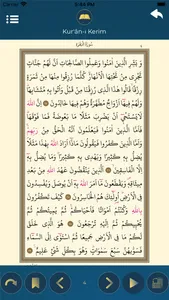 Kur'ân-ı Kerim
سُورَةُ الْبَقَرَةِ
وَبَشِّرِ الَّذِينَ اٰمَنُوا وَعَمِلُوا الصَّالِحَاتِ اَنَّ لَهُمْ جَنَّاتٍ
تَجْرِى مِنْ تَحْتِهَا الْاَنْهَارُ كُلَّمَا رُزِقُوا مِنْهَا مِنْ ثَمَرَةٍ
رِزْقًا قَالُوا هٰذَا الَّذِى رُزِقْنَا مِنْ قَبْلُ وَاُتُوا بِهِ مُتَشَابِهًا
وَلَهُمْ فِيهَا اَزْوَاجٌ مُطَهَّرَةٌ وَهُمْ فِيهَا خَالِدُونَ اِنَّ اللّٰهَ
لَا يَسْتَحْيِى اَنْ يَضْرِبَ مَثَلًا مَا بَعُوضَةً فَمَا فَوْقَهَا
فَاَمَّا الَّذِينَ اٰمَنُوا فَيَعْلَمُونَ اَنَّهُ الْحَقُّ مِنْ رَبِّهِمْ
وَاَمَّا الَّذِينَ كَفَرُوا فَيَقُولُونَ مَاذَا اَرَادَ اللّٰهُ
بِهٰذَا مَثَلًا يُضِلُّ بِهِ كَثِيرًا وَيَهْدِى بِهِ كَثِيرًا وَمَا يُضِلُّ
بِهِ اِلَّا الْفَاسِقِينَ الَّذِينَ يَنْقُضُونَ عَهْدَ اللّٰهِ
مِنْ بَعْدِ مِيثَاقِهِ وَيَقْطَعُونَ مَا اَمَرَ اللّٰهُ بِهِ اَنْ يُوصَلَ
وَيُفْسِدُونَ فِى الْاَرْضِ اُولٰئِكَ هُمُ الْخَاسِرُونَ كَيْفَ تَكْفُرُونَ
بِاللّٰهِ وَكُنْتُمْ اَمْوَاتًا فَاَحْيَاكُمْ ثُمَّ يُمِيتُكُمْ ثُمَّ
يُحْيِيكُمْ ثُمَّ اِلَيْهِ تُرْجَعُونَ هُوَ الَّذِى خَلَقَ لَكُمْ
مَا فِى الْاَرْضِ جَمِيعًا ثُمَّ اسْتَوٰى اِلَى السَّمَاءِ
فَسَوّٰيهُنَّ سَبْعَ سَمٰوَاتٍ وَهُوَ بِكُلِّ شَىْءٍ عَلِيمٌ
4